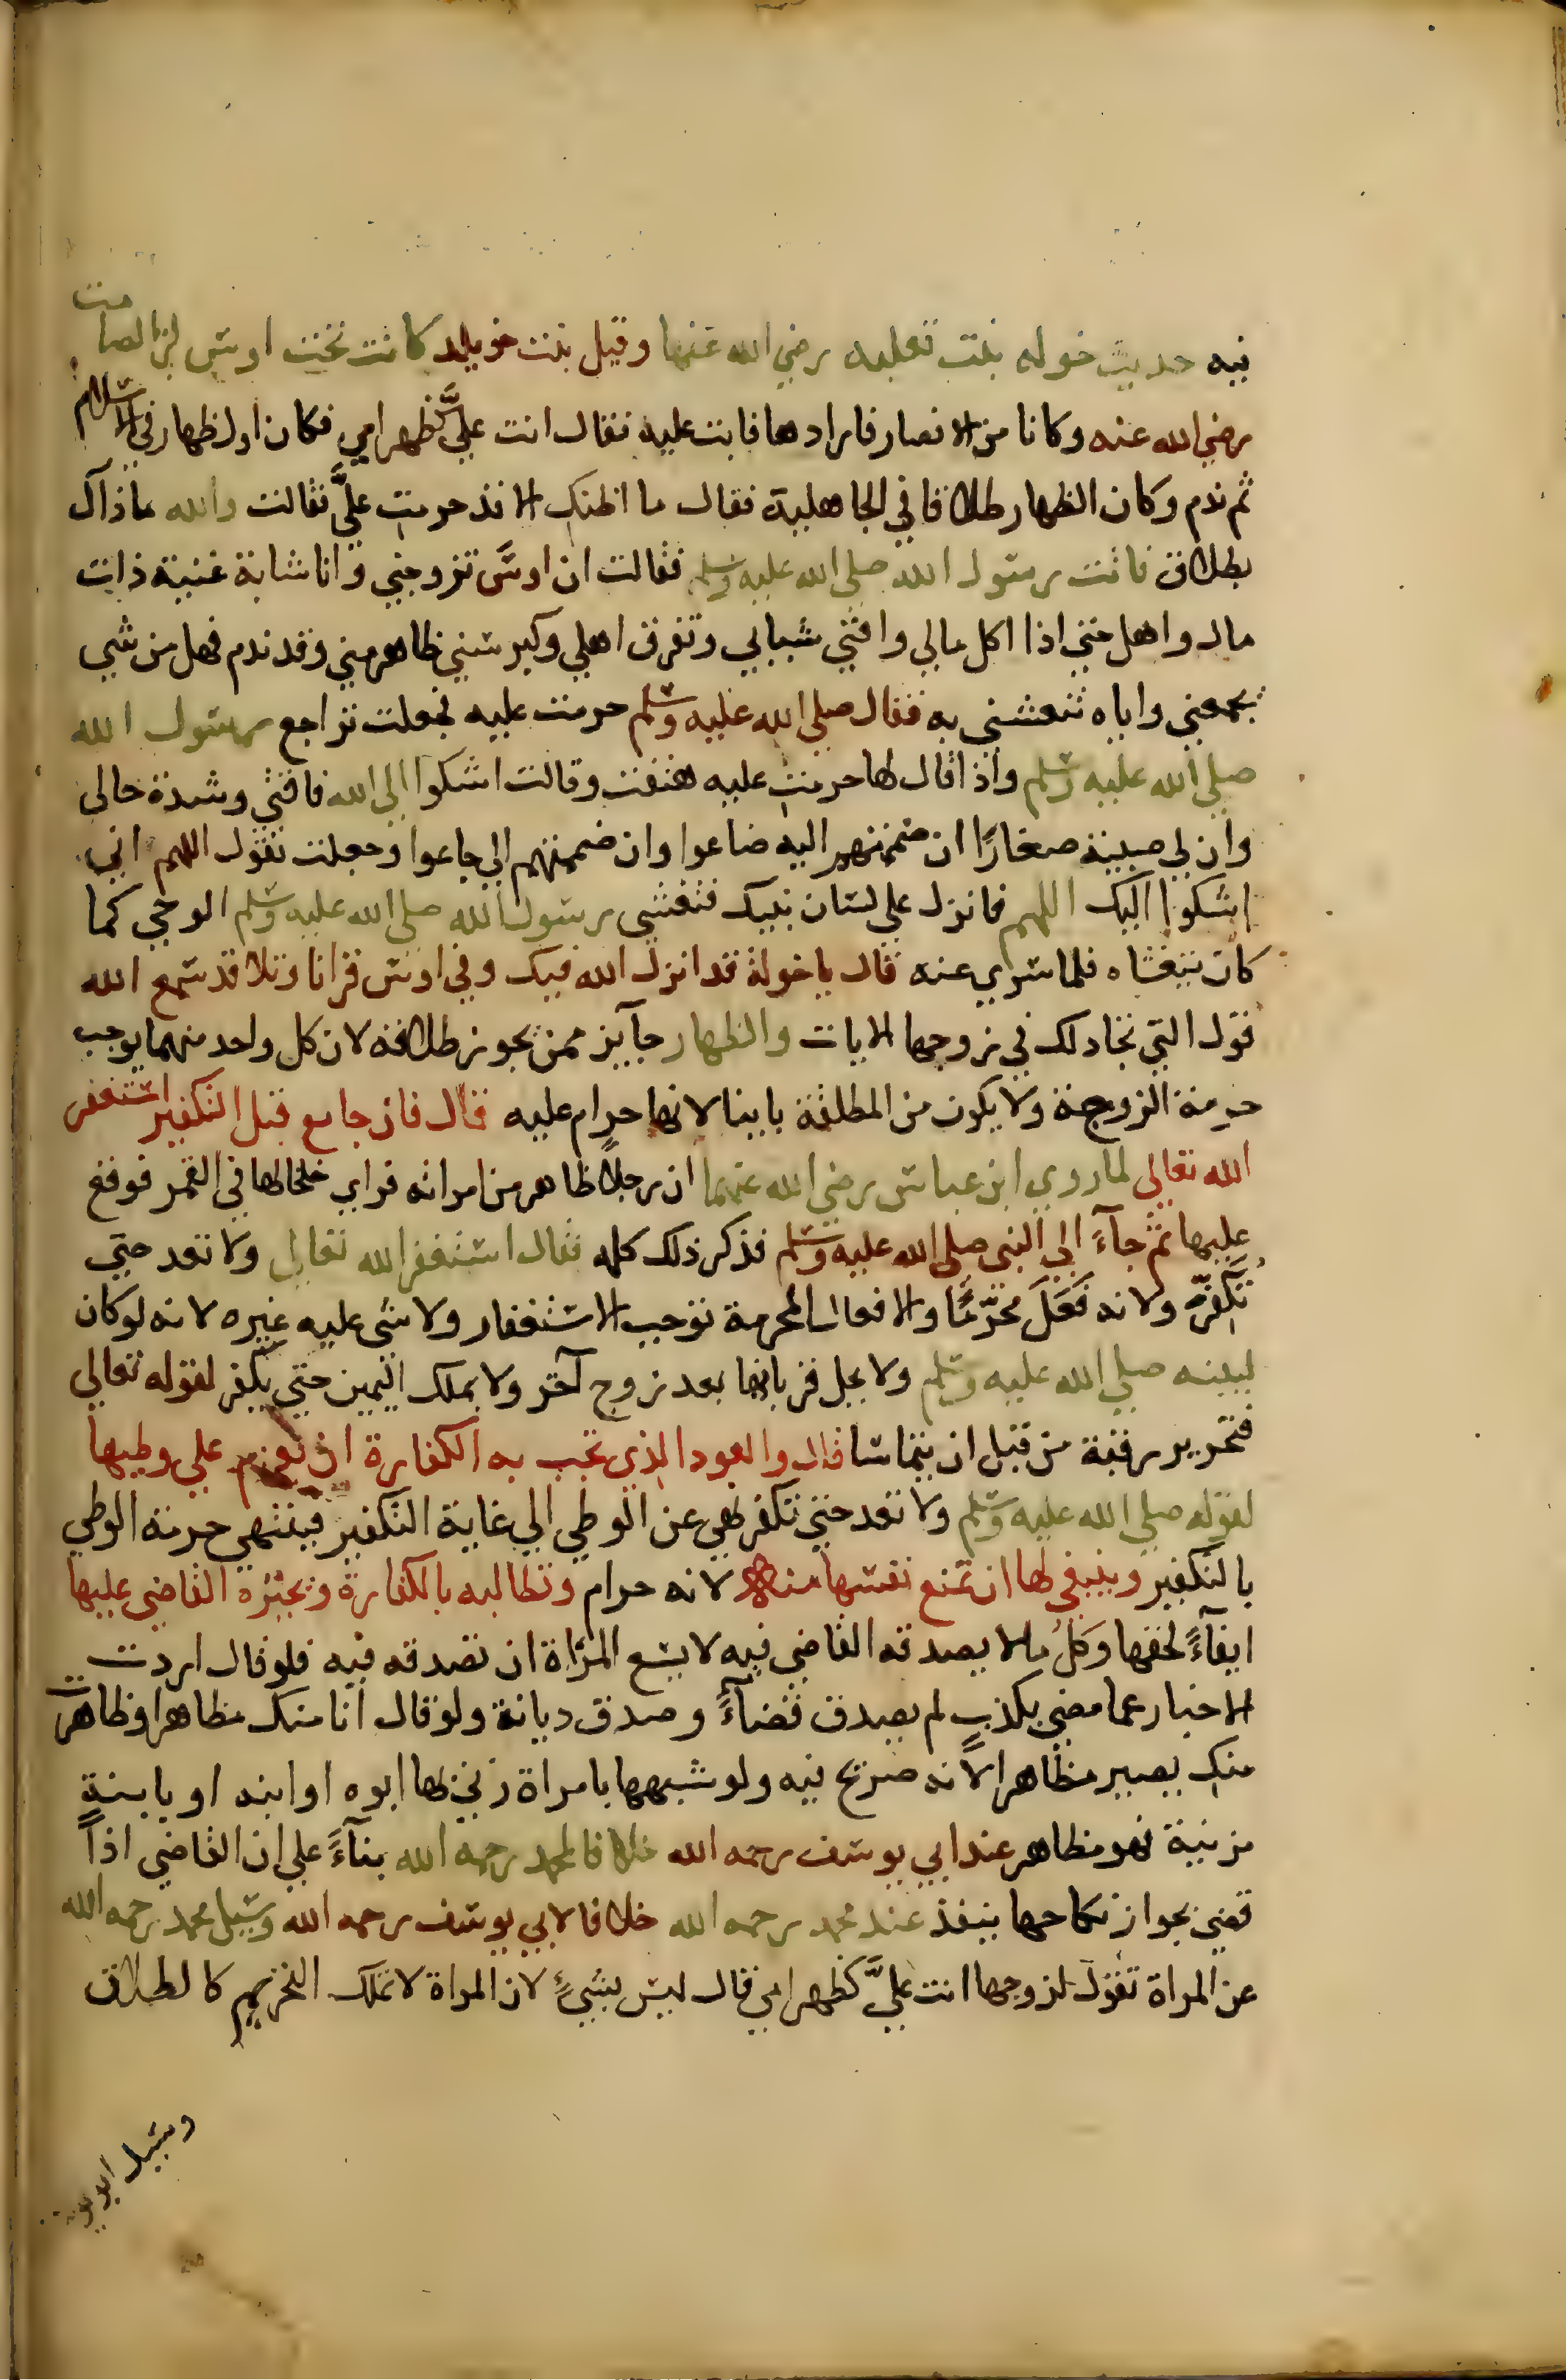 فيه حديث خوله بنت ثعلبه رضي الله عنها وقيل بنت خويلد كانت تحت اوس بن الصامت
رضي الله عنه وكانا من الانصار فارادها فابت عليه فقال انت عليَّ كظهر امي فكان اول ظهار في الاسلام
ثم ندم وكان الظهار طلاقا في الجاهلية فقال ما اظنك الا قد حرمت عليَّ فقالت والله ما ذاك
بطلاق فاتت رسول الله صلي الله عليه وسلم فقالت ان اوس تزوجني وانا شابة غنية ذات
مال واهل حتي اذا اكل مالي وافني شبابي وتفرق اهلي وكبر سني ظاهر مني وقد ندم فهل من شي
يجمعني واياه تنعشني به فقال صلي الله عليه وسلم حرمت عليه فجعلت تراجع رسول الله
صلي الله عليه وسلم واذا قال لها حرمت عليه هتفت وقالت اشكوا الي الله فاقتي وشدة حالي
وان لي صبية صغارًا ان ضممتهم اليه ضاعوا وان ضممتهم الي جاعوا وجعلت تقول اللهم اني
اشكوا اليك اللهم فانزل علي لسان نبيك فتغشي رسول الله صلي الله عليه وسلم الوحي كما
كان يتغشاه فلما سري عنه قال يا خولة قد انزل الله فيك وفي اوس قرانا وتلا قد سمع الله
قول التي تجادلك في زوجها الايات والظهار جآيز ممن يجوز طلاقه لان كل واحد منهما يوجب
حرمة الزوجة ولا يكون من المطلقة باينا لانها حرام عليه قال فان جامع قبل التكفير استغفر
الله تعالي لما روي ابن عباس رضي الله عنهما ان رجلا ظاهر من امراته فراي خلخالها في القمر فوقع
عليها ثم جآءَ الي النبي صلي الله عليه وسلم فذكر ذلك كله فقال استغفر الله تعالي ولا تعد حتي
تكفّر ولانه فَعَلَ محرّمًا والافعال المحرمة توجب الاستغفار ولا شي عليه غيره لانه لو كان
لبينه صلي الله عليه وسلم ولا يحل قربانها بعد زوج آخر ولا بملك اليمين حتي يكفر لقوله تعالي
فتحرير رقبة من قبل ان يتماسا قال والعود الذي تجب به الكفارة ان يعزم علي وطيها
لقوله صلي الله عليه وسلم ولا تعد حتي تكفر نهي عن الوطي الي غاية التكفير فينتهي حرمة الوطي
بالتكفير وينبغي لها ان تمنع نفسها منه لانه حرام وتطالبه بالكفارة ويجبره القاضي عليها
ايفآءً لحقها وكلُ ما لا يصدقه القاضي فيه لا يسع المرْاة ان تصدقه فيه فلو قال اردت
الاخبار عما مضي بكذبٍ لم يصدق قضآءً وصدق ديانة ولو قال انا منك مظاهر او ظاهرت
منك يصير مظاهرا لانه صريح فيه ولو شبهها بامراة زني بها ابوه او ابنه او بابنةٍ
مزنية فهو مظاهر عند ابي يوسف رحمه الله خلافا لمحمد رحمه الله بنآءً علي ان القاضي اذا
قضي بجواز نكاحها ينفذ عند محمد رحمه الله خلافا لابي يوسف رحمه الله وسيل محمد رحمه الله
عن المراة تقول لزوجها انت عليَّ كظهر امي قال ليس بشيءٍ لان المراة لا تملك التحريم كالطلاق
وسيل ابو يوسف